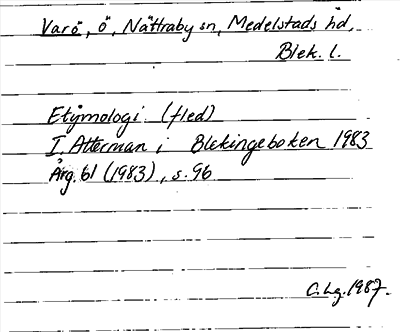 Varö, ö, Nättraby sn, Medelstads hd,
Blek. l.
Etymologi (fled)
I. Atterman i Blekingeboken 1983
Årg. 61 (1983), s. 96
C. Lg. 1987.